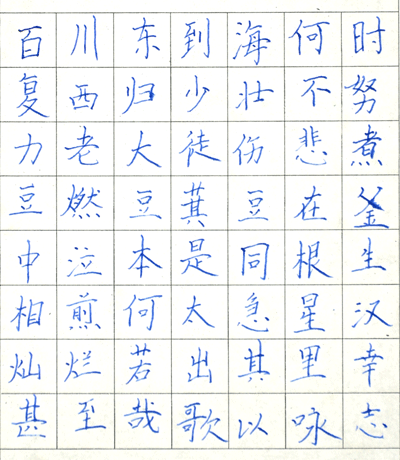 百川东到海何时
复西归少壮不努
力老大徒伤悲煮
豆燃豆萁豆在釜
中泣本是同根生
相煎何太急星汉
灿烂若出其里幸
甚至哉歌以咏志